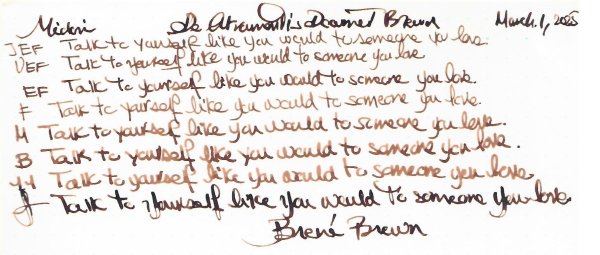 Midori De Atramentis Document Brown March 1, 2025
JEF Talk to yourself like you would to someone you love.
UEF Talk to yourself like you would to someone you love
EF Talk to yourself like you would to someone you love.
F Talk to yourself like you would to someone you love.
M Talk to yourself like you would to someone you love.
B Talk to yourself like you would to someone you love.
Talk to yourself like you would to someone you love
Talk to yourself like you would to someone you love.
Brené Brown